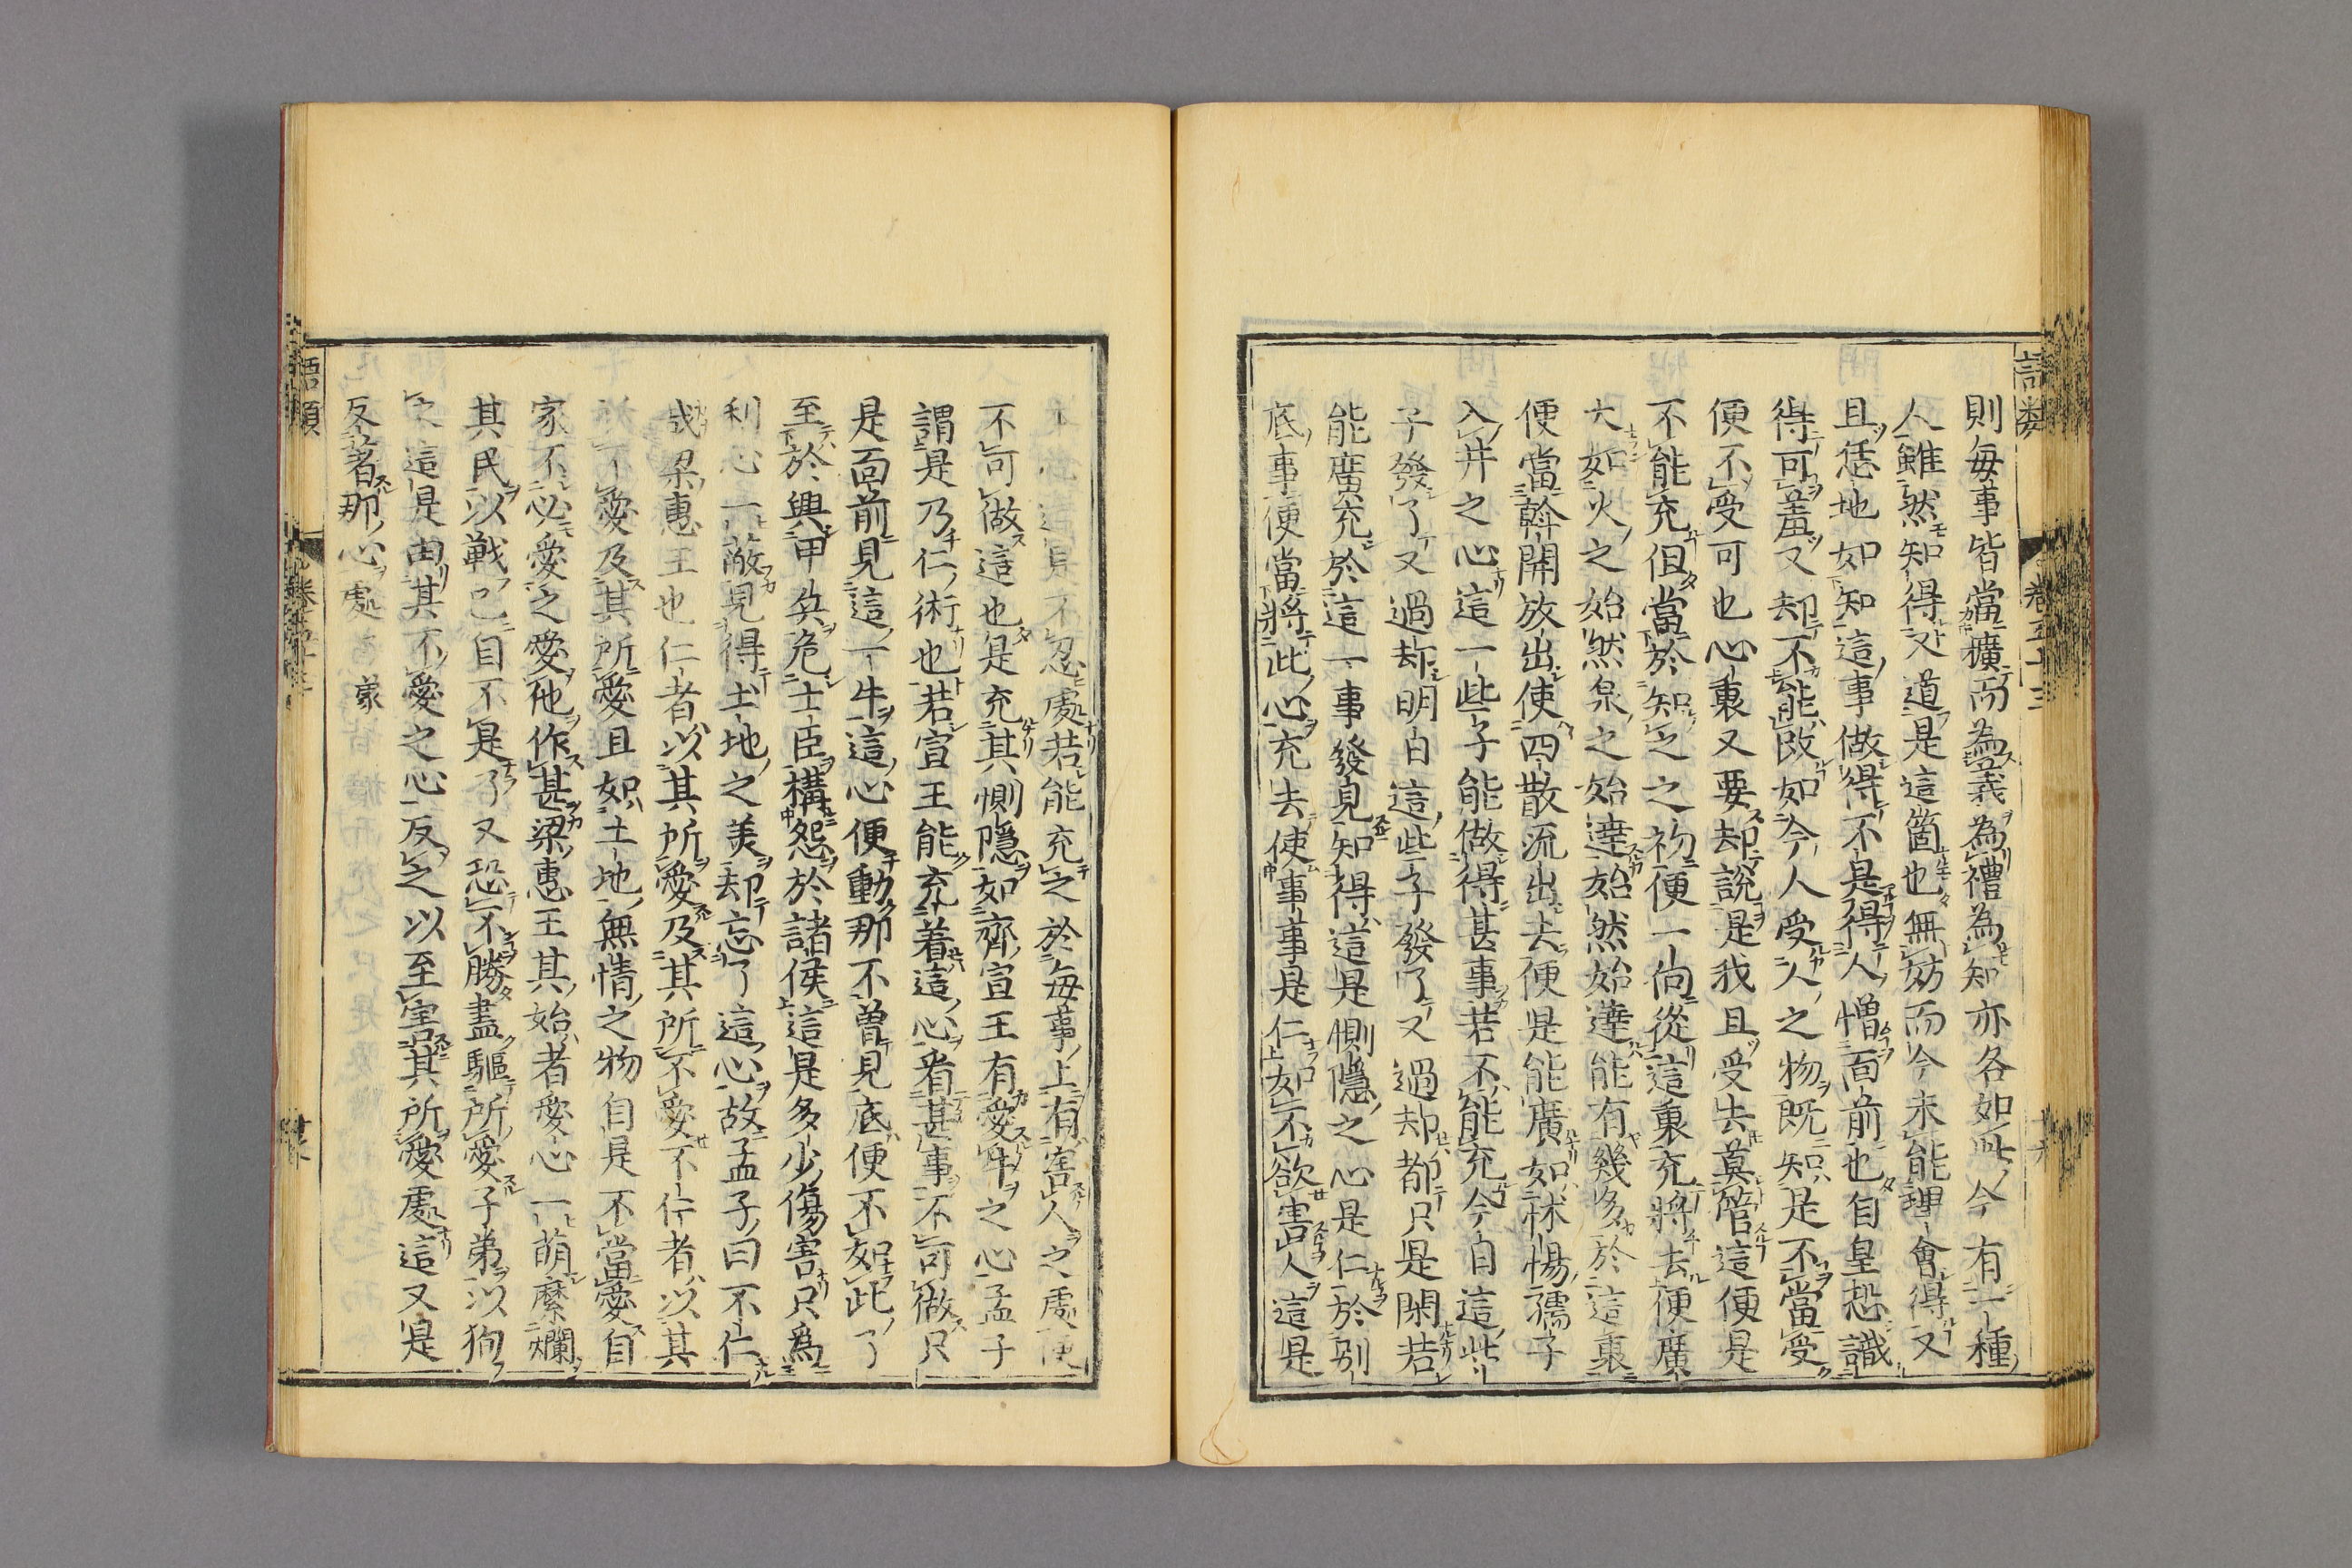 語類
卷五十三
十六
則每事皆當擴而為義為禮為知亦各如此今有一種
人雖然知得又道是這箇也無妨而今未能理會得又
且恁地如知這事做得不是得人憎面前也自皇恐識
得可羞又却不能改如今人受人之物既知是不當受
便不受可也心裏又要却說是我且受去莫管這便是
不能充但當於知之之初便一向從這裏充將去便廣
大如火之始然泉之始達始然始達能有幾多於這裏
便當斡開放出使四散流出去便是能廣如怵惕孺子
入井之心這一些子能做得甚事若不能充今日這些
子發了又過却明日這些子發了又過却都只是閑若
能廣充於這一事發見知得這是惻隱之心是仁於別
底事便當將此心充去使事事是仁如不欲害人這是
本心這是不忍處若能充之於每事上有害人之處便
不可做這也是充其惻隱如齊宣王有愛牛之心孟子
謂是乃仁術也若宣王能充着這心看甚事不可做只
是面前見這一牛這心便動那不曾見底便不如此了
至於興甲兵危士臣構怨於諸侯這是多少傷害只爲
利心一蔽見得土地之美却忘了這心故孟子曰不仁
哉梁惠王也仁者以其所愛及其所不愛不仁者以其
所不愛及其所愛且如土地無情之物自是不當愛自
家不必愛之愛他作甚梁惠王其始者愛心一萌縻爛
其民以戰已自不是了又恐不勝盡驅所愛子弟以狥
之這是由其不愛之心反之以至害其所愛處這又是
反著那心處 蒙
語類
卷五十三